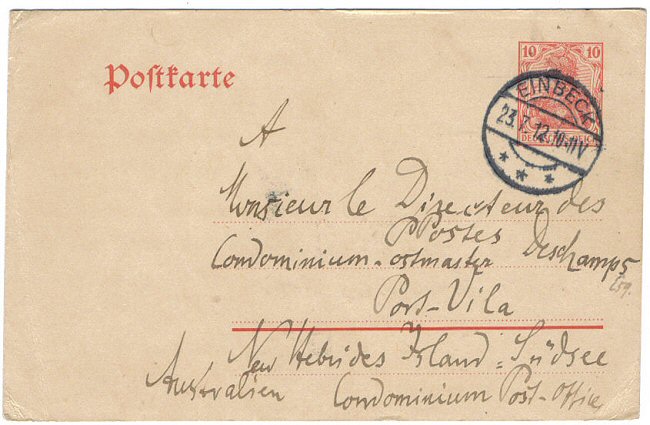 10 10
Postkarte
EINBECK
23.7.12.10-11V
DEUTSCHES REICH
A
Monsieur le Directeur des
Postes
Condominium-Postmaster Deschamps
Esq.
Port-Vila
New Hebrides Island-Südsee
Australien Condominium Post-Office